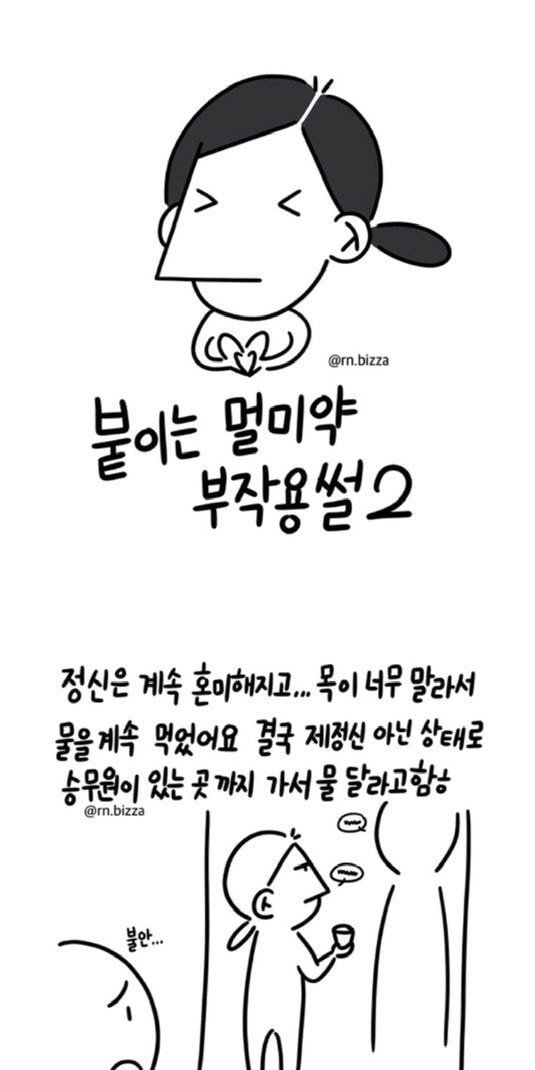 @rn.bizza
붙이는 멀미약
부작용썰2
정신은 계속 혼미해지고... 목이 너무 말라서
물을 계속 먹었어요 결국 제정신 아닌 상태로
승무원이 있는 곳까지 가서 물 달라고함ㅎ
@rn.bizza
불안...